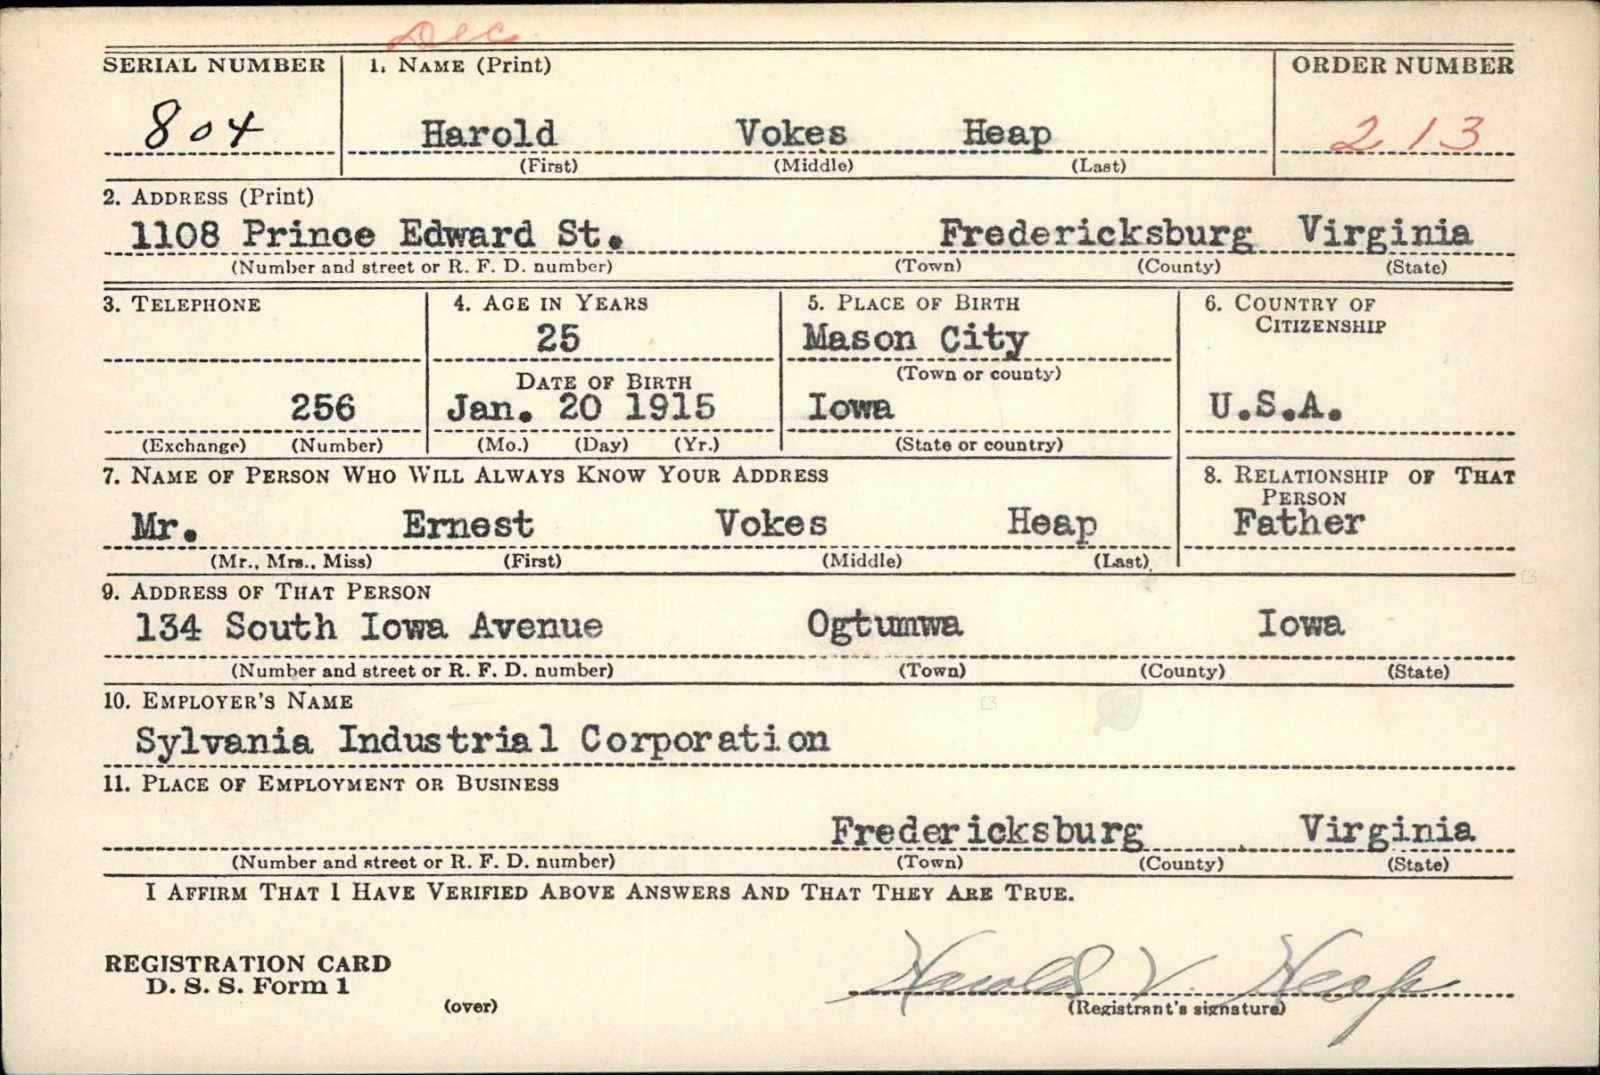 Dec
SERIAL NUMBER 1. NAME (Print) ORDER NUMBER
804 Harold Vokes Heap 213
(First) (Middle) (Last)
2. ADDRESS (Print)
1108 Prince Edward St. Fredericksburg Virginia
(Number and street or R. F. D. number) (Town) (County) (State)
3. TELEPHONE 4. AGE IN YEARS 5. PLACE OF BIRTH 6. COUNTRY OF
CITIZENSHIP
25 Mason City
(Town or county)
DATE OF BIRTH
256 Jan. 20 1915 Iowa U.S.A.
(Exchange) (Number) (Mo.) (Day) (Yr.) (State or country)
7. NAME OF PERSON WHO WILL ALWAYS KNOW YOUR ADDRESS 8. RELATIONSHIP OF THAT
PERSON
Mr. Ernest Vokes Heap Father
(Mr., Mrs., Miss) (First) (Middle) (Last)
9. ADDRESS OF THAT PERSON
134 South Iowa Avenue Ogtumwa Iowa
(Number and street or R. F. D. number) (Town) (County) (State)
10. EMPLOYER'S NAME
Sylvania Industrial Corporation
11. PLACE OF EMPLOYMENT OR BUSINESS
Fredericksburg Virginia
(Number and street or R. F. D. number) (Town) (County) (State)
I AFFIRM THAT I HAVE VERIFIED ABOVE ANSWERS AND THAT THEY ARE TRUE.
REGISTRATION CARD
D. S. S. Form 1
Harold V. Heap
(over) (Registrant's signature)